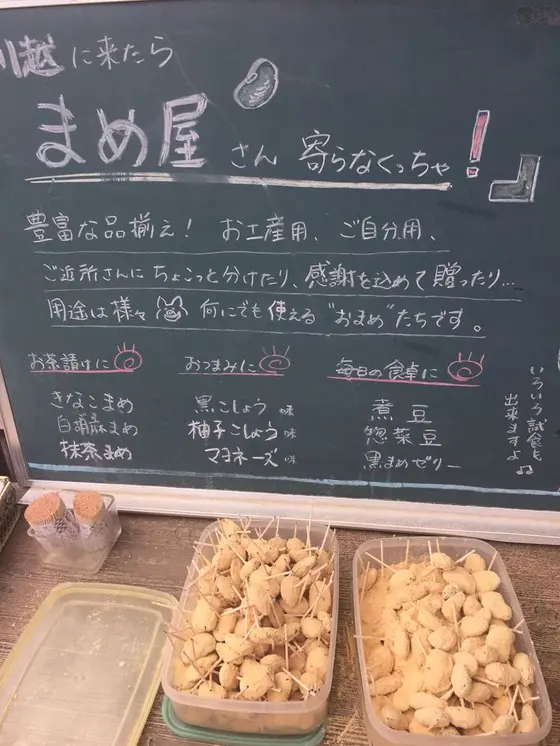 川越に来たら
まめ屋さん 寄らなくっちゃ！
豊富な品揃え！ お土産用、ご自分用、
ご近所さんにちょこっと分けたり、感謝を込めて贈ったり…
用途は様々 何にでも使える"おまめ"たちです。
お茶請けに
きなこまめ
白胡麻まめ
抹茶まめ
おつまみに
黒こしょう味
柚子こしょう味
マヨネーズ味
毎日の食卓に
煮豆
惣菜豆
黒まめゼリー
いろいろ試食も
出来ますよ♫